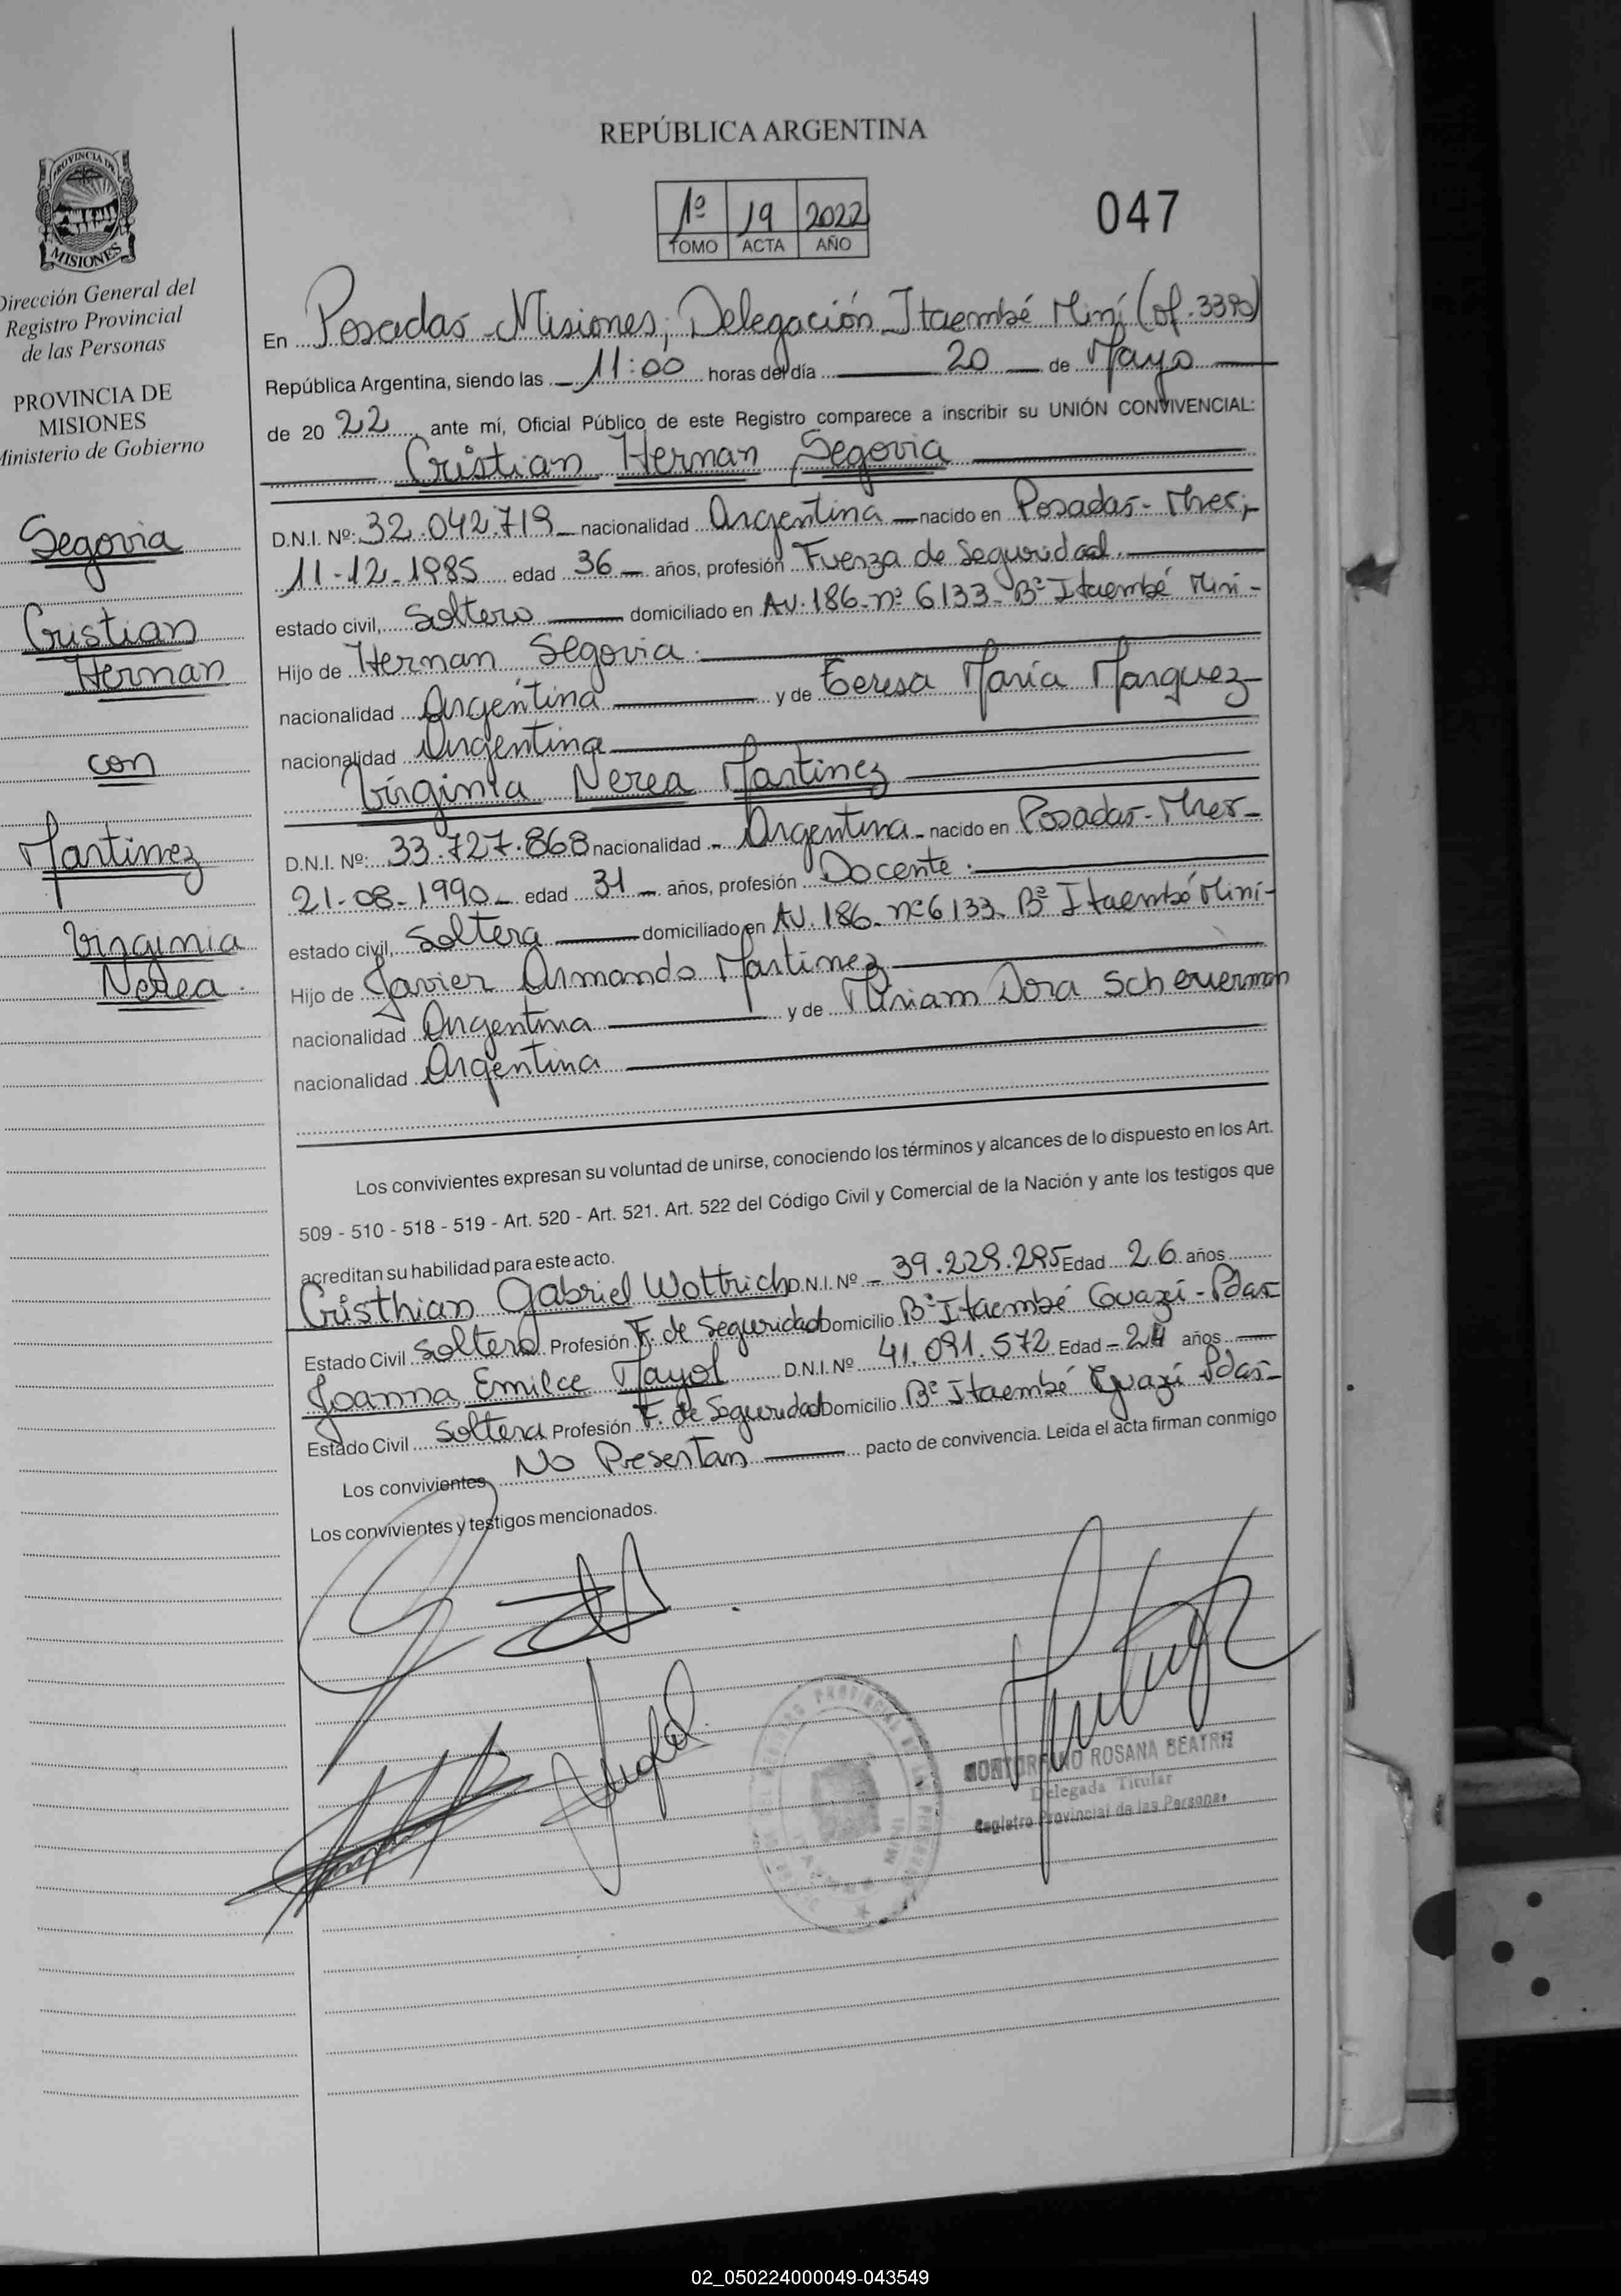 REPÚBLICA ARGENTINA
1º 19 2022
TOMO ACTA AÑO
047
PROVINCIA DE
MISIONES
Dirección General del
Registro Provincial
de las Personas
PROVINCIA DE
MISIONES
Ministerio de Gobierno
Segovia
Cristian
Hernan
con
Martinez
Virginia
Nerea.
En Posadas-Misiones, Delegación Itaembé Miní (of.
República Argentina, siendo las 11:00 horas del día 20 de Mayo
de 20 22 ante mí, Oficial Público de este Registro comparece a inscribir su UNIÓN CONVIVENCIAL:
Cristian Hernan Segovia
D.N.I. Nº: 32.042.719 nacionalidad Argentina nacido en Posadas-
11-12-1985 edad 36 años, profesión Fuerza de Seguridad.
estado civil, Soltero domiciliado en Av. 186-nº 6133-Bº Itaembé Miní-
Hijo de Hernan Segovia.
nacionalidad Argentina y de Teresa María Marquez
nacionalidad Argentina
Virginia Nerea Martinez
D.N.I. Nº: 33.727.868 nacionalidad - Argentina- nacido en Posadas-
21-08-1990 edad 31 años, profesión Docente.
estado civil, Soltera domiciliado en Av. 186-nº6133 Bº Itaembé Miní-
Hijo de Javier Armando Martinez
nacionalidad Argentina y de Miriam Dora Scheuerman
nacionalidad Argentina
Los convivientes expresan su voluntad de unirse, conociendo los términos y alcances de lo dispuesto en los Art.
509 - 510 - 518 - 519 - Art. 520 - Art. 521. Art. 522 del Código Civil y Comercial de la Nación y ante los testigos que
acreditan su habilidad para este acto.
Cristhian Gabriel Wottrich D.N.I. Nº 39.229.295 Edad 26 años
Estado Civil Soltero Profesión F. de Seguridad Domicilio Bº Itaembé Guazú-Pdas-
Joanna Emilce Mayol D.N.I. Nº 41.091.572 Edad - 24 años
Estado Civil Soltera Profesión F. de Seguridad Domicilio Bº Itaembé Guazú Pdas-
Los convivientes No Presentan pacto de convivencia. Leida el acta firman conmigo
Los convivientes y testigos mencionados.
ROSANA BEATRIZ
Delegada Titular
Registro Provincial de las Personas
02_050224000049-043549